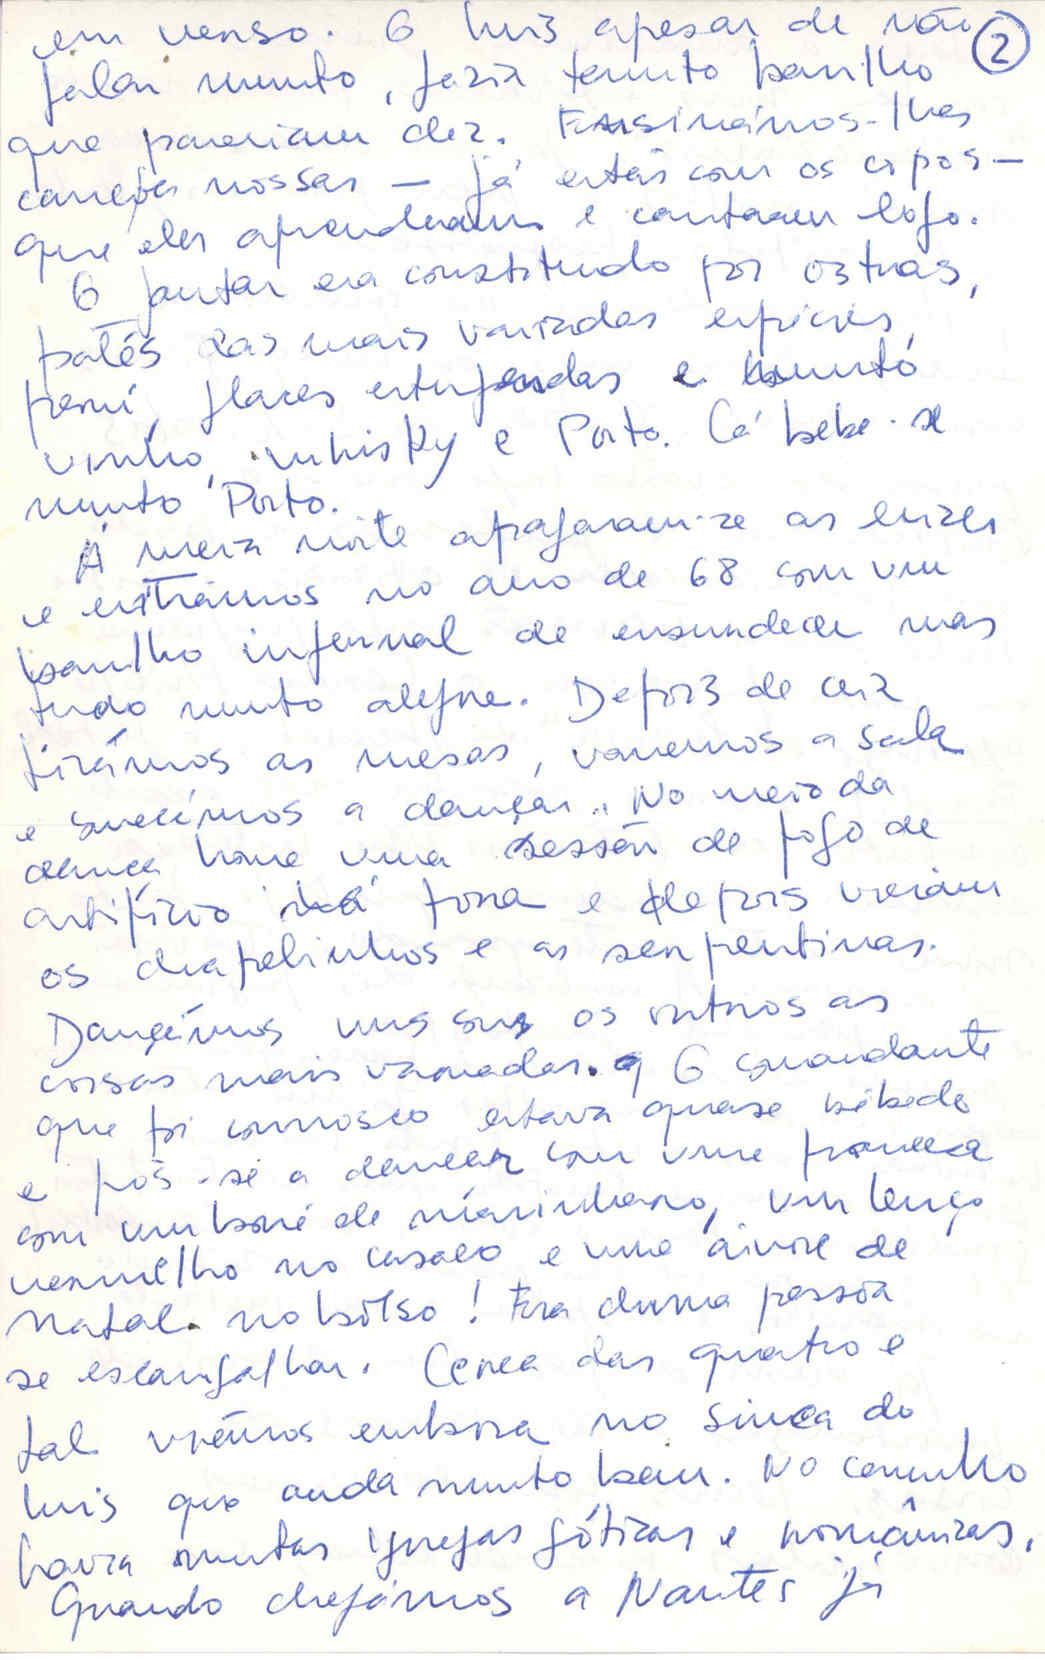 em verso. O Luís apesar de não ②
falar muito, fazia tanto barulho
que pareciam dez. Ensinámos-lhes
canções nossas – já estás com os copos –
que eles aprenderam e cantaram logo.
O jantar era constituido por ostras,
patés das mais variadas espécies,
perú, glaces estupendas e muito
vinho, whisky e Porto. Cá bebe-se
muito Porto.
Á meia noite apagaram-se as luzes
e entrámos no ano de 68 com um
barulho infernal de ensurdecer mas
tudo muito alegre. Depois de ceia
tirámos as mesas, varremos a sala
e começámos a dançar. No meio da
dança houve uma sessão de fogo de
artifício lá fora e depois vieram
os chapelinhos e as serpentinas.
Dançámos uns com os outros as
coisas mais variadas. O comandante
que foi connosco estava quase bêbedo
e pôs-se a dançar com uma francesa
com um boné de marinheiro, um lenço
vermelho no casaco e uma árvore de
Natal no bolso! Era duma pessoa
se escangalhar. Cerca das quatro e
tal viémos embora no Simca do
Luís que anda muito bem. No caminho
havia muitas igrejas góticas e românicas.
Quando chegámos a Nantes já